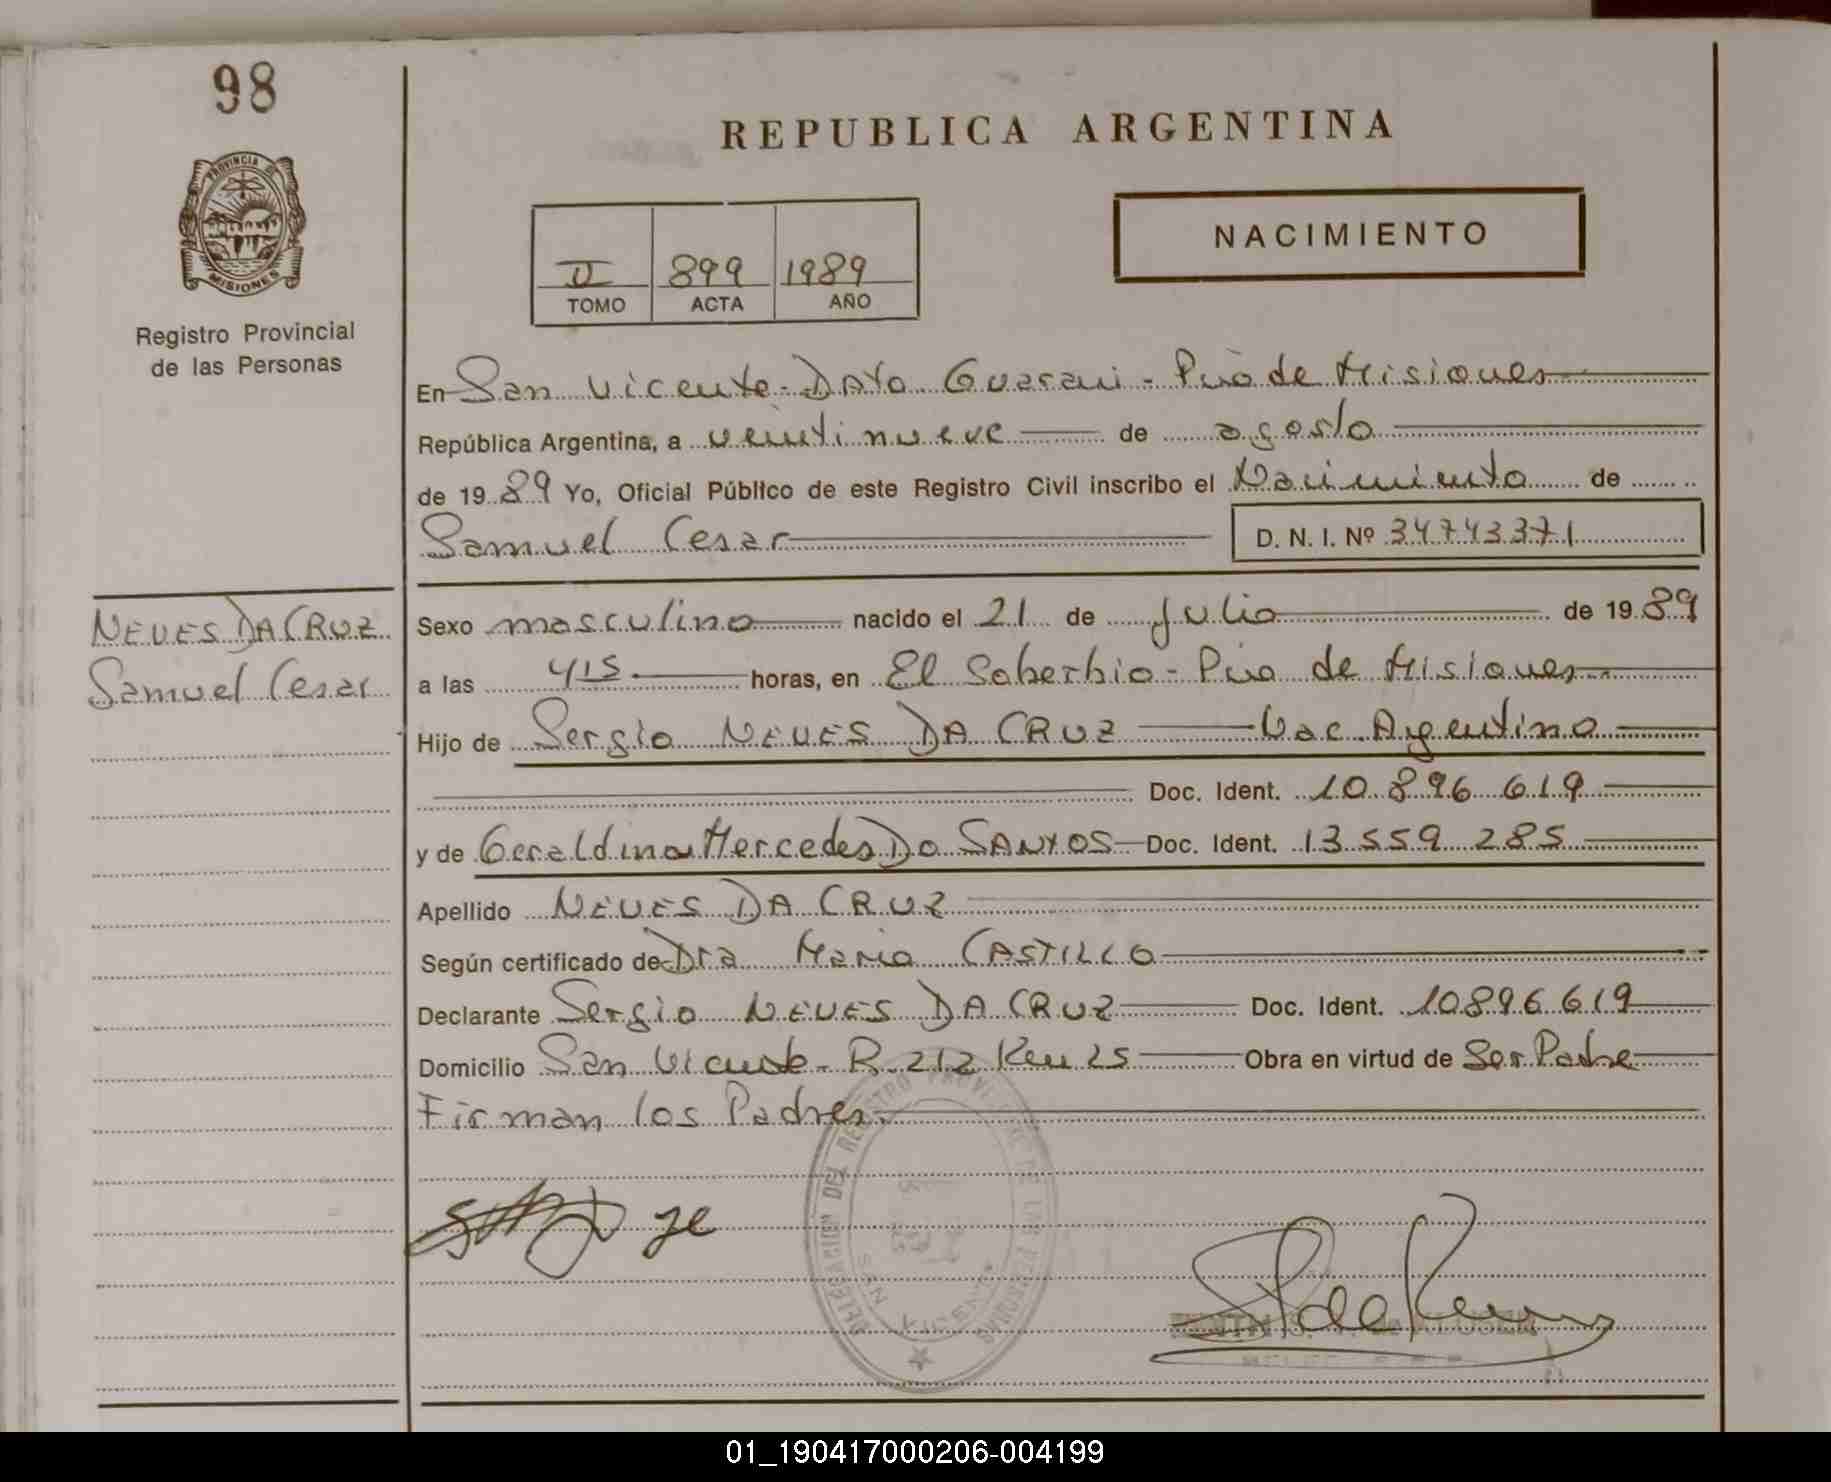 98
REPUBLICA ARGENTINA
PROVINCIA DE
MISIONES
Registro Provincial
de las Personas
II 899 1989
TOMO ACTA AÑO
NACIMIENTO
En San Vicente - Dpto Guarani - Pcia de Misiones
República Argentina, a veintinueve de agosto
de 1989 Yo, Oficial Público de este Registro Civil inscribo el Nacimiento de
Samuel Cesar D. N. I. Nº 34743371
NEVES DA CRUZ
Samuel Cesar
Sexo masculino nacido el 21 de Julio de 1989
a las 415 horas, en El Soberbio - Pcia de Misiones
Hijo de Sergio NEVES DA CRUZ Nac. Argentino
Doc. Ident. 10.896.619
y de Geraldina Mercedes Do SANTOS Doc. Ident. 13.559.285
Apellido NEVES DA CRUZ
Según certificado de Dra Maria CASTILLO
Declarante Sergio NEVES DA CRUZ Doc. Ident. 10896619
Domicilio San Vicente - R. 212 Km 25 Obra en virtud de Ser Padre
Firman los Padres.
DELEGACION DEL REGISTRO PROVINCIAL DE LAS PERSONAS
SAN VICENTE
01_190417000206-004199